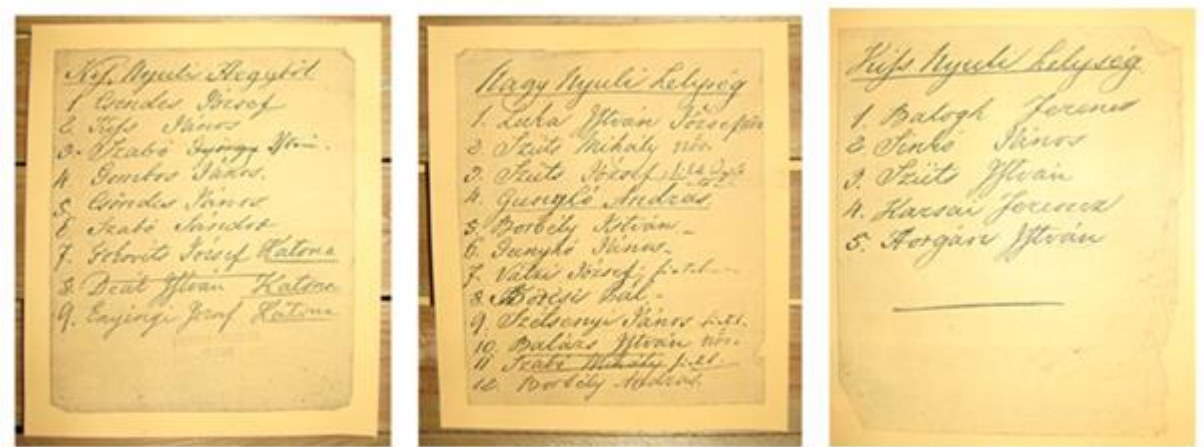 Kis Nyuli Hegyből
1 Csendes József
2. Kiss János
3. Szabó György
4 Gombos János.
5. Csöndes János
6 Szabó Sándor
7. József Katona
8. Deát Istvan Katona
9. Enyingi Josef Katona
Nagy Nyuli Helység
1. Luka Istvan József
2. Szüts Mihály nős.
3. Szüts József
4. Gunyhó András
5. Borbély István
6. Gunyhó János
7. Vatzi József
8. Pál
9. Szélsenyi János
10. Balázs Istvan nős.
11 Szabó Mihály
12. Borbély András.
Kiss Nyuli Helység
1. Balogh Ferencz
2. Sinkó János
3. Szüts Istvan
4. Karsai Ferencz
5. Horgán Istvan